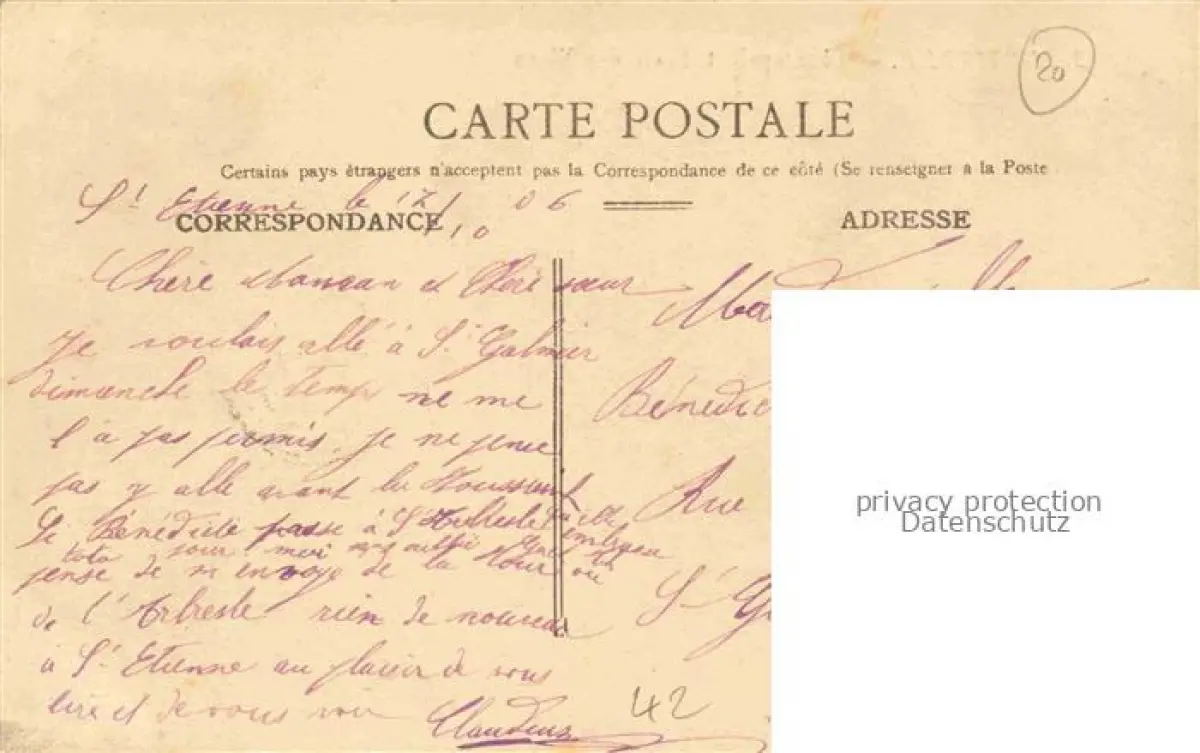 20
CARTE POSTALE
Certains pays étrangers n'acceptent pas la Correspondance de ce côté (Se renseigner à la Poste
St Etienne le 17/10 06
CORRESPONDANCE
ADRESSE
Chère Maman et Chère sœur
Je voulais allé à St Galmier
dimanche le temp ne me
l'a pas permis. je ne pense
pas y allé avant la Toussaint
Si Bénédicte passe à l'Arbresle
pour moi
pense de m'envoyé de la
de l'Arbresle rien de nouveau
à St Etienne au plaisir de vous
lire et de vous voir Claudius
Bénédic
Rue
St G
42
privacy protection
Datenschutz